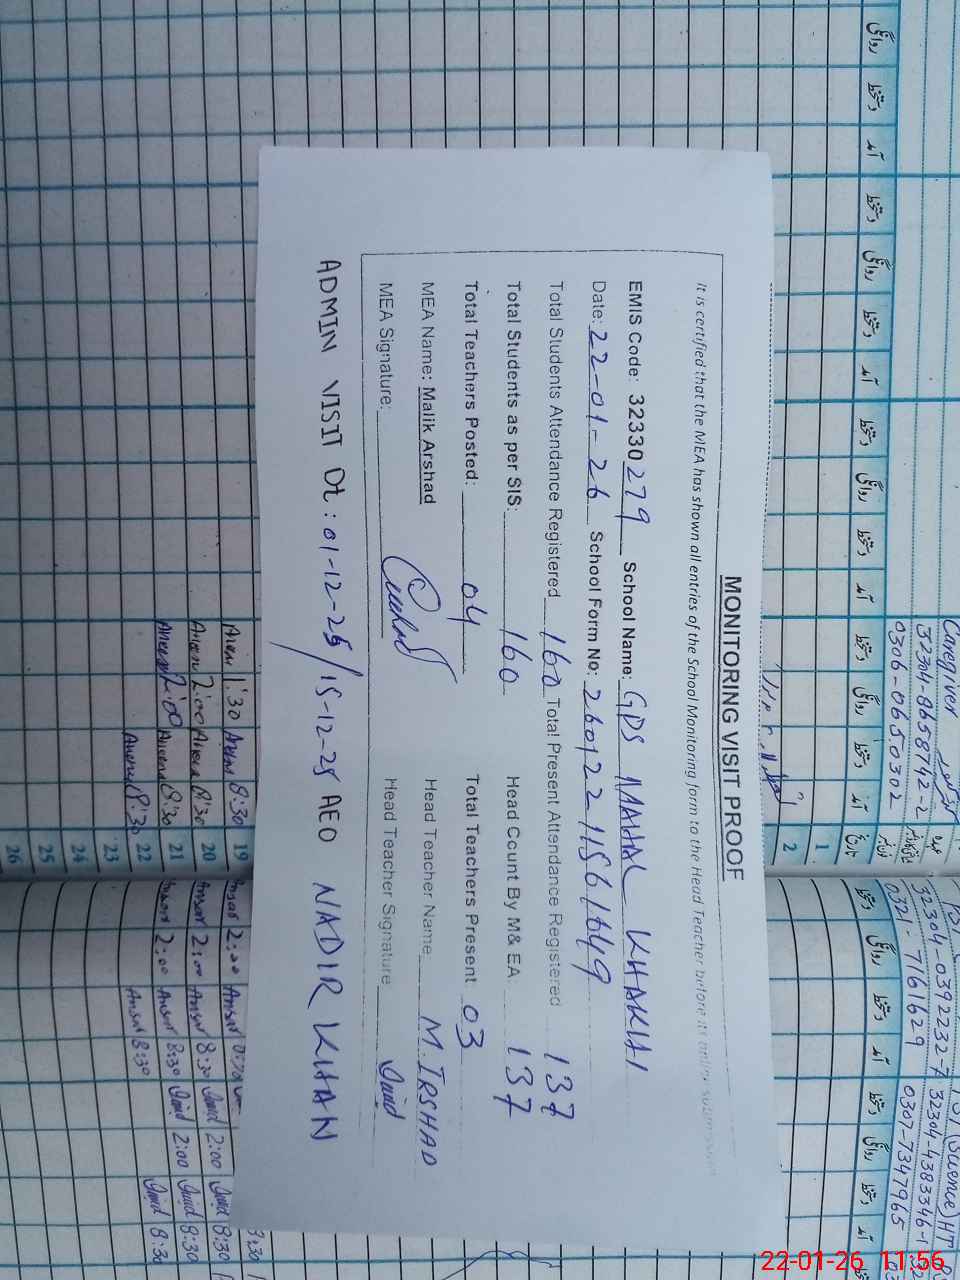 MONITORING VISIT PROOF
It is certified that the MEA has shown all entries of the School Monitoring form to the Head Teacher before its online submission
EMIS Code: 32330279 School Name: GPS MAHAL KHAKHI
Date: 22-01-26 School Form No: 260122 1156 1649
Total Students Attendance Registered 160 Total Present Attendance Registered 137
Total Students as per SIS: 160 Head Count By M& EA 137
Total Teachers Posted: 04 Total Teachers Present 03
MEA Name: Malik Arshad Head Teacher Name M. IRSHAD
MEA Signature: Head Teacher Signature
ADMIN VISIT Dt: 01-12-25/15-12-25 AEO NADIR KHAN
Caregiver
32304-8658742-2
0306-0650302
32304-0392232-7
032 - 7161629
PST (Science)
32304-4383346-1
0307-7347965
HT
روانگی دستخط آمد دستخط روانگی دستخط آمد دستخط روانگی دستخط آمد دستخط روانگی دستخط آمد تاریخ
دستخط روانگی دستخط آمد دستخط روانگی دستخط آمد
1
2
19 8:30 1:30 2:00
20 8:30 2:00 Ansar 8:30 Ansar 2:00 8:30 2:00
21 8:30 2:00 Ansar 8:30 Ansar 2:00 8:30 2:00
22 8:30 Ansar 8:30 8:30
23
24
25
26
22-01-26 11:56